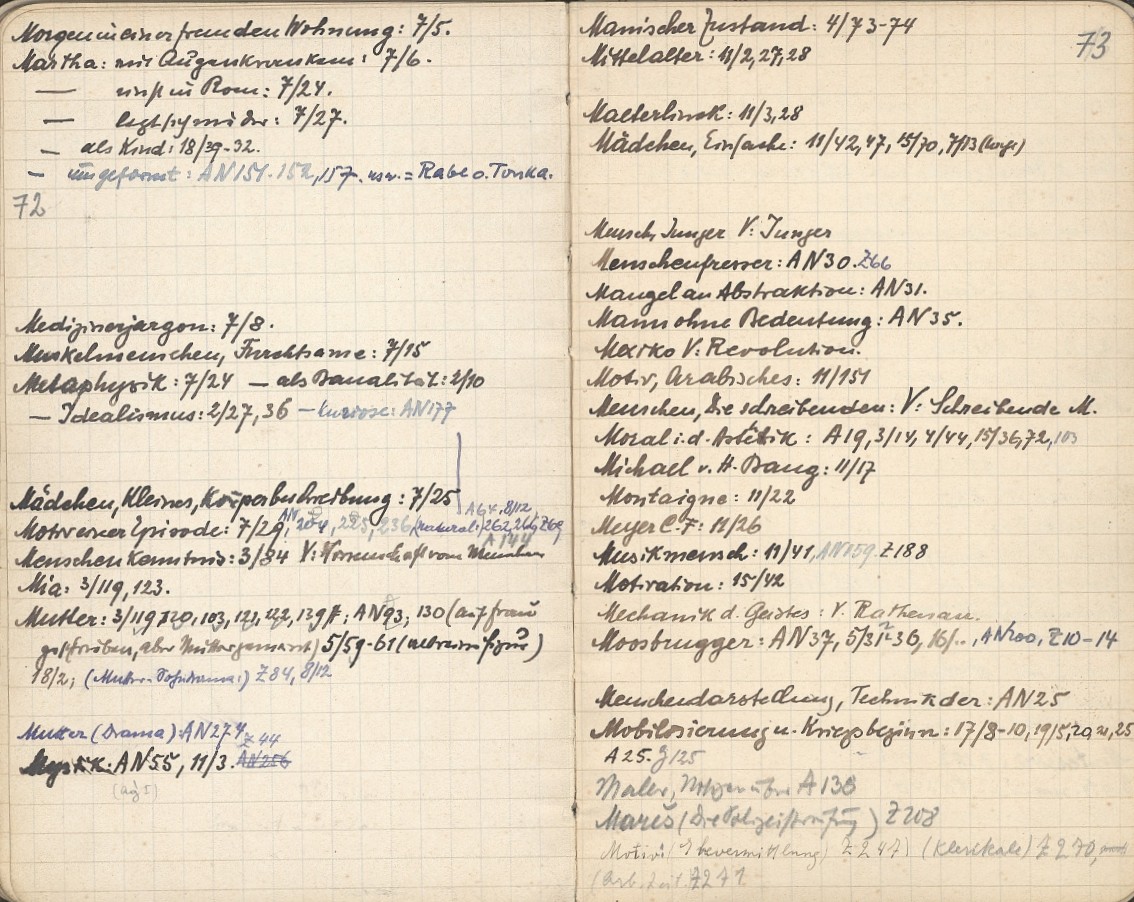 Morgen in einer fremden Wohnung: 7/5.
Martha: mit Augenkranken: 7/6.
— in Rom: 7/24.
— legt sich nieder: 7/27.
— als Kind: 18/39-32.
— umgeformt: AN151-152, 157. usw. = Rabe o. Tonka.
72
Medizinerjargon: 7/8.
Muskelmenschen, Furchtsame: 7/15
Metaphysik: 7/24 — als Banalität: 2/10
— Idealismus: 2/27, 36 — kuriose: AN177
Mädchen, Kleines, Körperbeschreibung: 7/25
A64, 8/12,
Motiv einer Episode: 7/29, AN 204, 225, 236, (natural:) 262, Z69
A 144
Menschenkenntnis: 3/84 V: Wissenschaft vom Menschen
Mia: 3/119, 123.
Mutter: 3/119, 120, 103, 121, 122, 139 f; AN93, 130 (auf Frau
geschrieben, aber Mutter gemeint) 5/59-61 (Nebenfigur)
18/2; (Mutter-Sohndrama:) Z84, 8/12
Mutter (Drama): AN274, Z44
Mystik: AN55, 11/3. AN256
Manischer Zustand: 4/73-74
73
Mittelalter: 11/2, 27, 28
Maeterlinck: 11/3, 28
Mädchen, Einfache: 11/42, 47, 15/70, 7/13
Mensch, Junger V: Junger
Menschenfresser: AN30. Z66
Mangel an Abstraktion: AN31.
Mann ohne Bedeutung: AN35.
Mexiko V: Revolution.
Motiv, Arabisches: 11/151
Menschen, Die schreibenden: V: Schreibende M.
Moral i. d. Ästhetik: A19, 3/14, 4/44, 15/36, 72, 103
Michael v. H. Bang: 11/17
Montaigne: 11/22
Meyer C. F: 11/26
Musikmensch: 11/41, AN159. Z188
Motivation: 15/42
Mechanik d. Geistes: V. Rathenau.
Moosbrugger: AN37, 5/31-36, 16/.., AN200, Z10-14
Menschendarstellung, Technik der: AN25
Mobilisierung u. Kriegsbeginn: 17/8-10, 19/5, 20, 21, 25
A25. Z125
Maler, Notizen über A138
Z208
Motive (Ehevermittlung) Z247) (Klerikale) Z270,
Z271